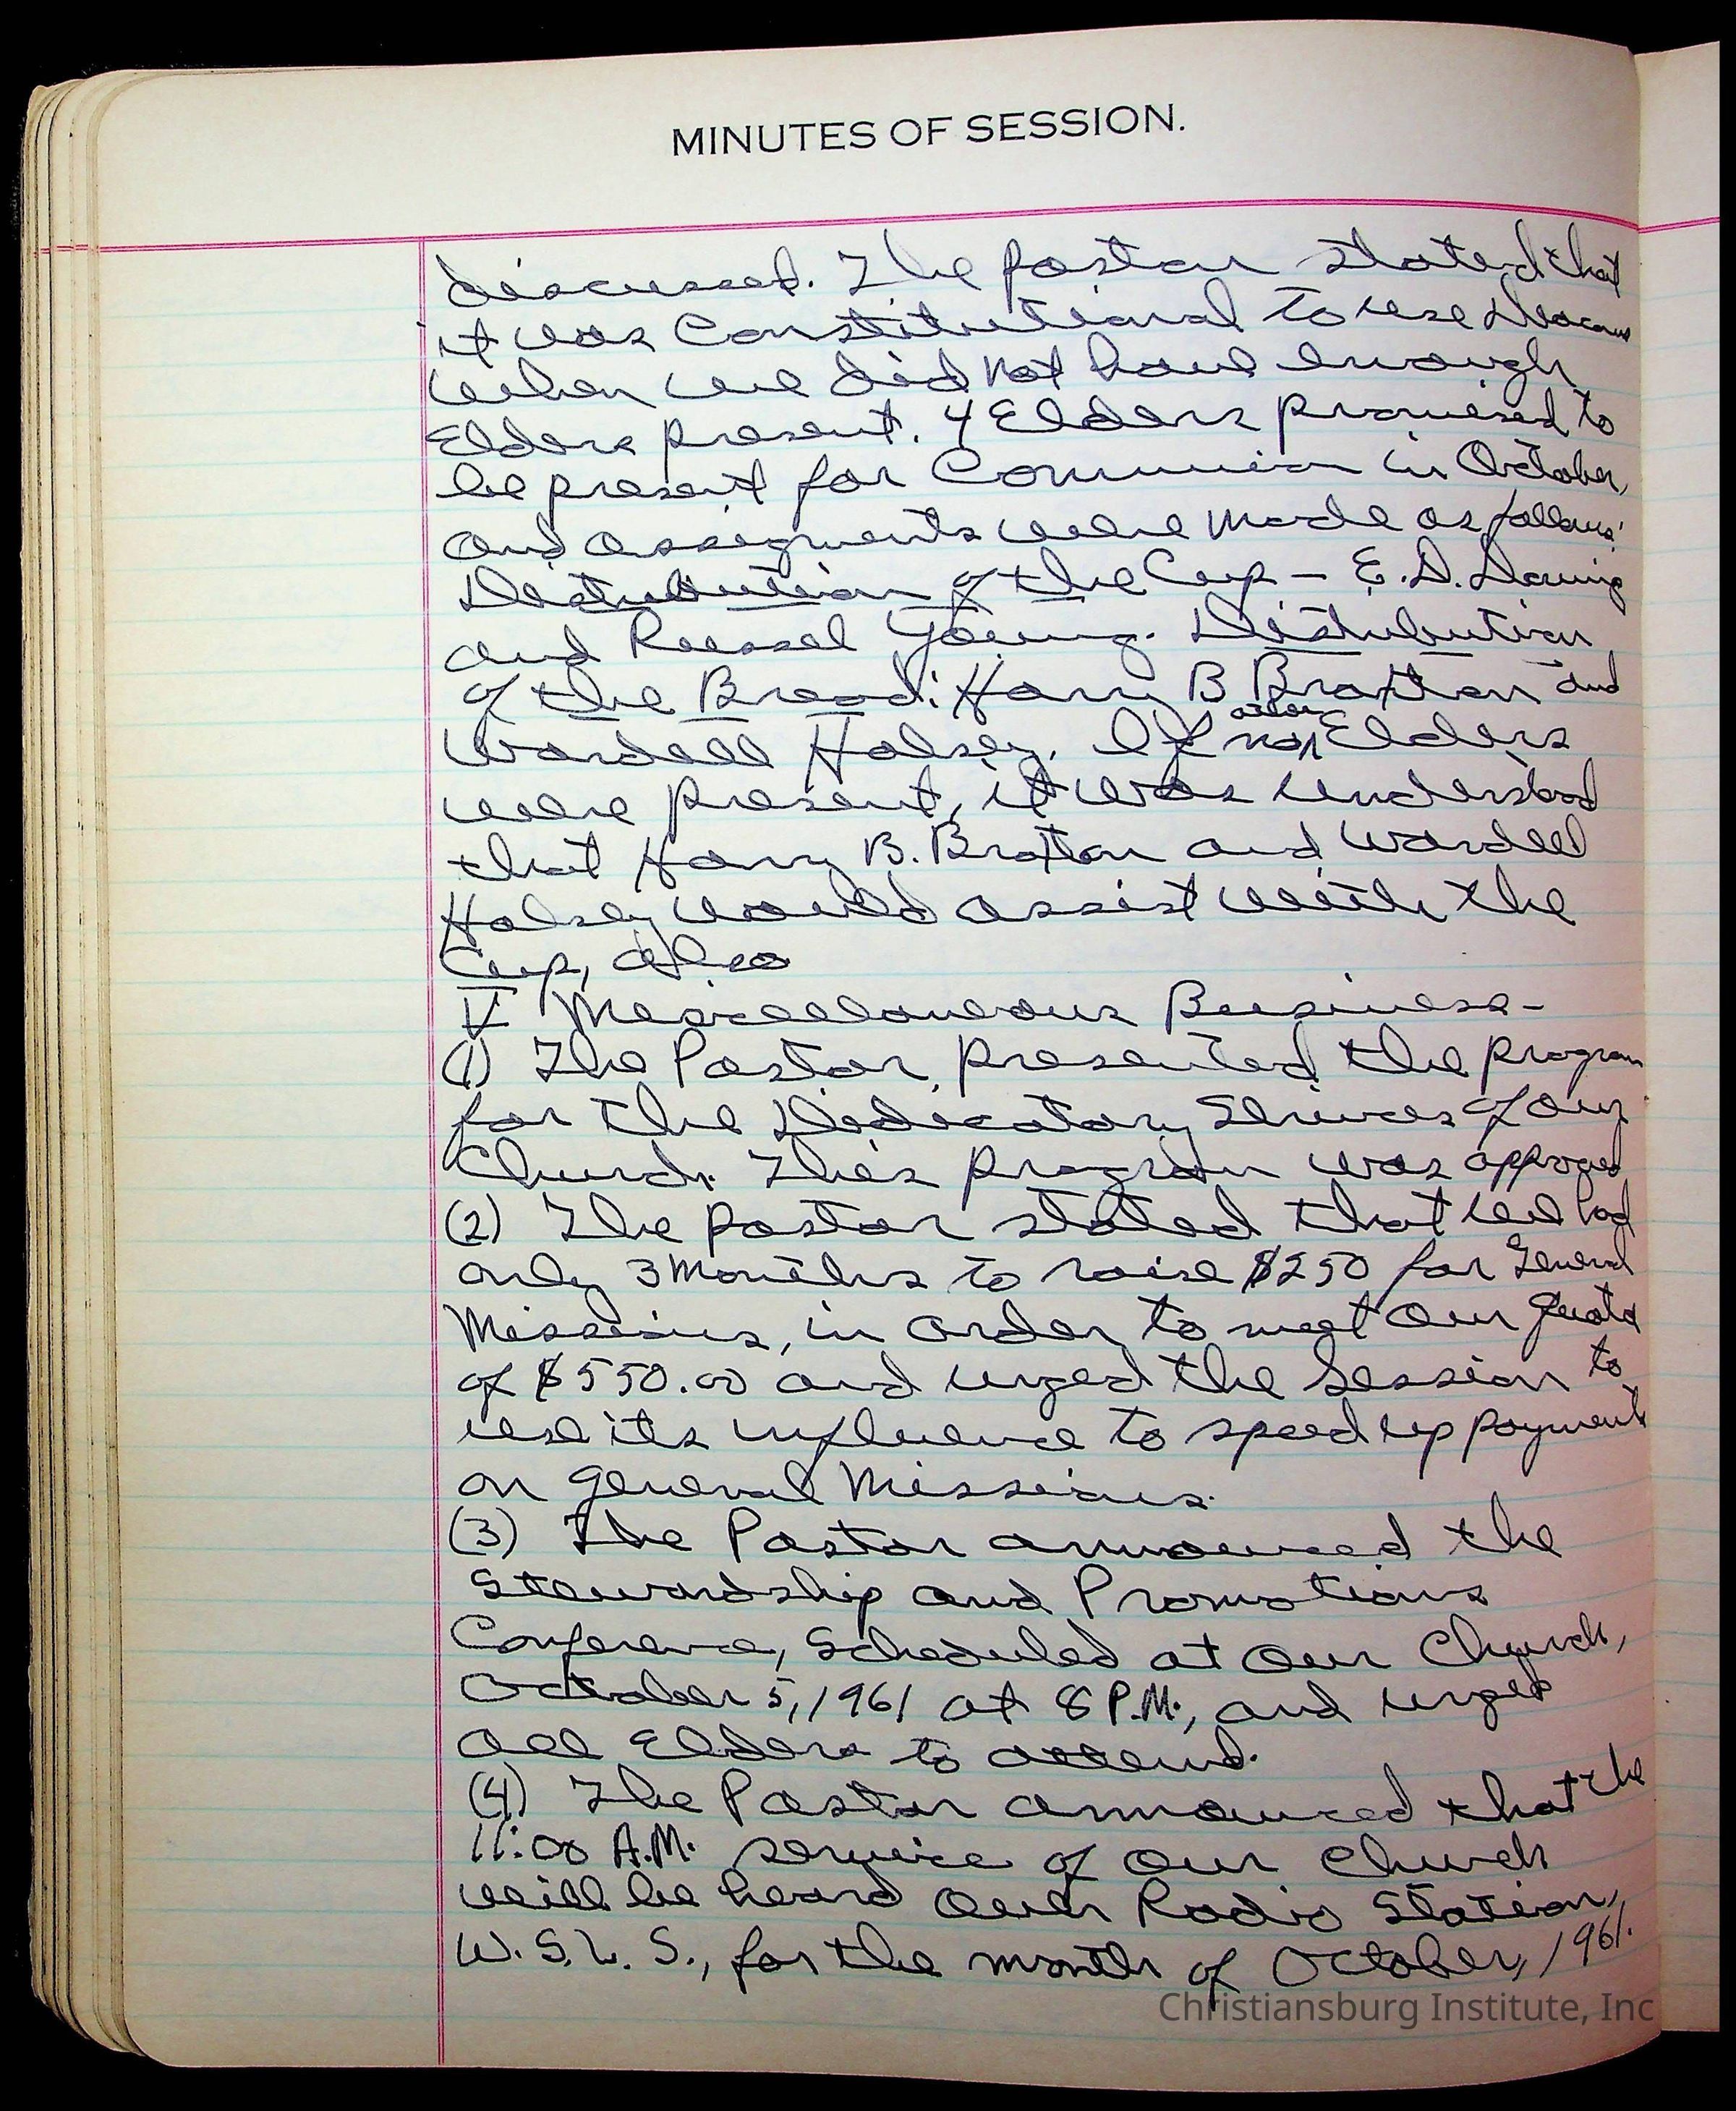 MINUTES OF SESSION.
discussed. The pastor stated that
it was Constitutional to use Deacons
when we did not have enough
Elders present. 4 Elders promised to
be present for Communion in October,
and assigments were made as follows:
Distribution of the Cup – E. D.
and Russel Young. Distribution
of the Bread: Harry B Bratton and
Wardell Halsey. If no other Elders
were present, it was understood
that Harry B. Bratton and Wardell
Halsey would assist with the
Cup, also
V Miscellaneous Business-
(1) The Pastor presented the program
for the Dedicatory Services of our
Church. This program was approved
(2) The pastor stated that we had
only 3 months to raise $250 for General
Missions, in order to meet our quota
of $550.00 and urged the Session to
use its influence to speed up payments
on general Missions.
(3) The Pastor announced the
Stewardship and Promotions
Conference, scheduled at our Church,
October 5, 1961 at 8 P.M., and urged
all Elders to attend.
(4) The Pastor announced that the
11:00 A.M. service of our church
will be heard over Radio Station,
W. S. L. S., for the month of October, 1961.
Christiansburg Institute, Inc